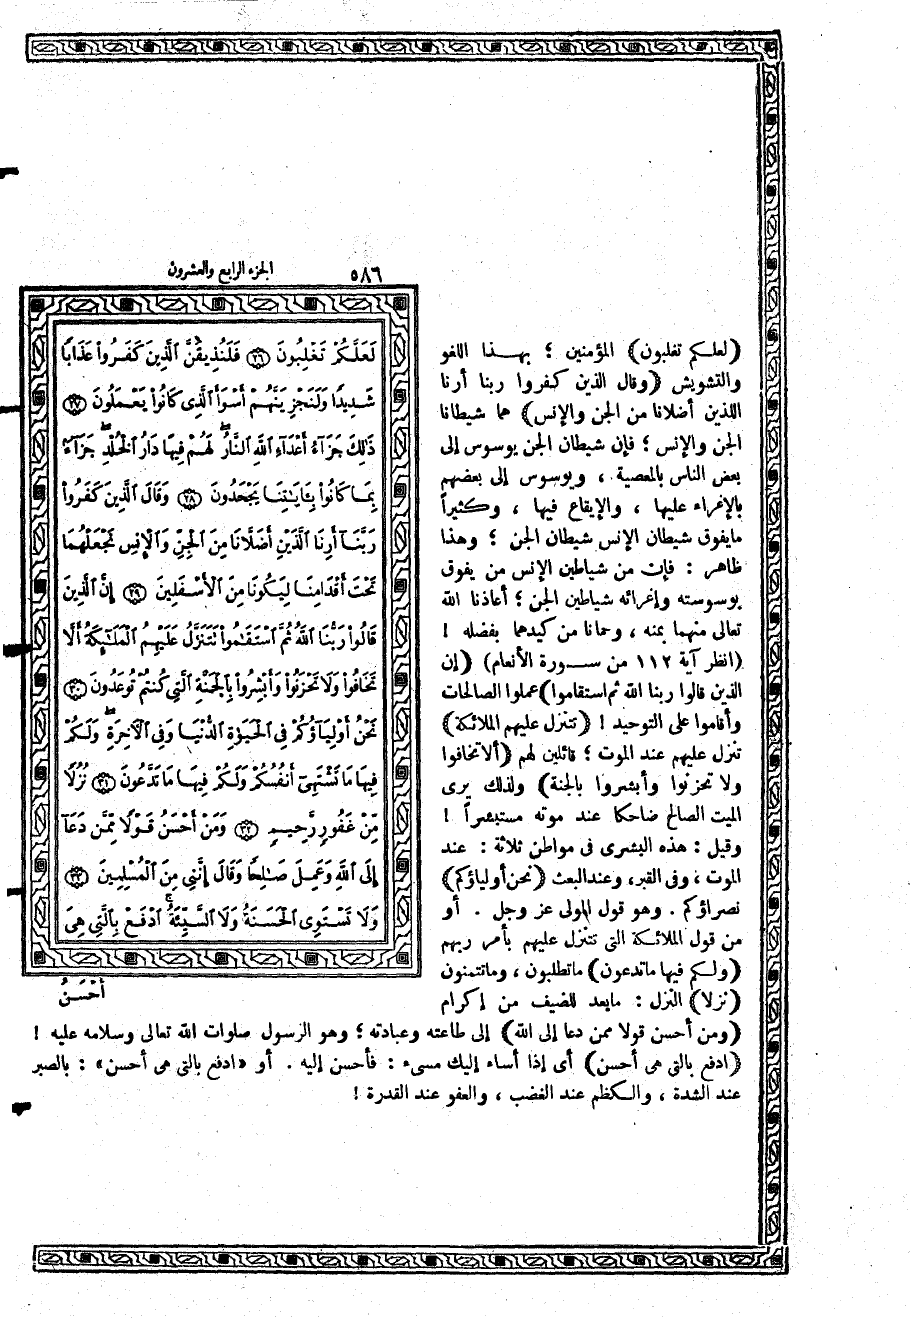 ٥٨٦
الجزء الرابع والعشرون
لَعَلَّكُمْ تَغْلِبُونَ ﴿٢٦﴾ فَلَنُذِيقَنَّ ٱلَّذِينَ كَفَرُوا۟ عَذَابًا
شَدِيدًا وَلَنَجْزِيَنَّهُمْ أَسْوَأَ ٱلَّذِى كَانُوا۟ يَعْمَلُونَ ﴿٢٧﴾
ذَٰلِكَ جَزَآءُ أَعْدَآءِ ٱللَّهِ ٱلنَّارُ ۖ لَهُمْ فِيهَا دَارُ ٱلْخُلْدِ ۖ جَزَآءً
بِمَا كَانُوا۟ بِـَٔايَـٰتِنَا يَجْحَدُونَ ﴿٢٨﴾ وَقَالَ ٱلَّذِينَ كَفَرُوا۟
رَبَّنَآ أَرِنَا ٱلَّذَيْنِ أَضَلَّانَا مِنَ ٱلْجِنِّ وَٱلْإِنسِ نَجْعَلْهُمَا
تَحْتَ أَقْدَامِنَا لِيَكُونَا مِنَ ٱلْأَسْفَلِينَ ﴿٢٩﴾ إِنَّ ٱلَّذِينَ
قَالُوا۟ رَبُّنَا ٱللَّهُ ثُمَّ ٱسْتَقَـٰمُوا۟ تَتَنَزَّلُ عَلَيْهِمُ ٱلْمَلَـٰٓئِكَةُ أَلَّا
تَخَافُوا۟ وَلَا تَحْزَنُوا۟ وَأَبْشِرُوا۟ بِٱلْجَنَّةِ ٱلَّتِى كُنتُمْ تُوعَدُونَ ﴿٣٠﴾
نَحْنُ أَوْلِيَآؤُكُمْ فِى ٱلْحَيَوٰةِ ٱلدُّنْيَا وَفِى ٱلْـَٔاخِرَةِ ۖ وَلَكُمْ
فِيهَا مَا تَشْتَهِىٓ أَنفُسُكُمْ وَلَكُمْ فِيهَا مَا تَدَّعُونَ ﴿٣١﴾ نُزُلًا
مِّنْ غَفُورٍ رَّحِيمٍ ﴿٣٢﴾ وَمَنْ أَحْسَنُ قَوْلًا مِّمَّن دَعَآ
إِلَى ٱللَّهِ وَعَمِلَ صَـٰلِحًا وَقَالَ إِنَّنِى مِنَ ٱلْمُسْلِمِينَ ﴿٣٣﴾
وَلَا تَسْتَوِى ٱلْحَسَنَةُ وَلَا ٱلسَّيِّئَةُ ۚ ٱدْفَعْ بِٱلَّتِى هِىَ
أَحْسَنُ
(لعلكم تغلبون) المؤمنين ؛ بهذا اللغو
والتشويش (وقال الذين كفروا ربنا أرنا
اللذين أضلانا من الجن والإنس) هما شيطانا
الجن والإنس ؛ فإن شيطان الجن يوسوس إلى
بعض الناس بالمعصية ، ويوسوس إلى بعضهم
بالإغراء عليها ، والإيقاع فيها ، وكثيراً
مايفوق شيطان الإنس شيطان الجن ؛ وهذا
ظاهر : فإن من شياطين الإنس من يفوق
بوسوسته وإغرائه شياطين الجن ؛ أعاذنا الله
تعالى منهما بمنه ، وحمانا من كيدهما بفضله !
(انظر آية ١١٢ من سورة الأنعام) (إن
الذين قالوا ربنا الله ثم استقاموا) عملوا الصالحات
وأقاموا على التوحيد ! (تتنزل عليهم الملائكة)
تنزل عليهم عند الموت ؛ قائلين لهم (ألا تخافوا
ولا تحزنوا وأبشروا بالجنة) ولذلك يرى
الميت الصالح ضاحكا عند موته مستبشراً !
وقيل : هذه البشرى فى مواطن ثلاثة : عند
الموت ، وفى القبر ، وعند البعث (نحن أولياؤكم)
نصراؤكم . وهو قول المولى عز وجل . أو
من قول الملائكة التى تتنزل عليهم بأمر ربهم
(ولكم فيها ماتدعون) ماتطلبون ، وماتتمنون
(نزلا) النزل : مايعد للضيف من إكرام
(ومن أحسن قولا ممن دعا إلى الله) إلى طاعته وعبادته ؛ وهو الرسول صلوات الله تعالى وسلامه عليه !
(ادفع بالتى هى أحسن) أى إذا أساء إليك مسىء : فأحسن إليه . أو «ادفع بالتى هى أحسن» : بالصبر
عند الشدة ، والكظم عند الغضب ، والعفو عند القدرة !